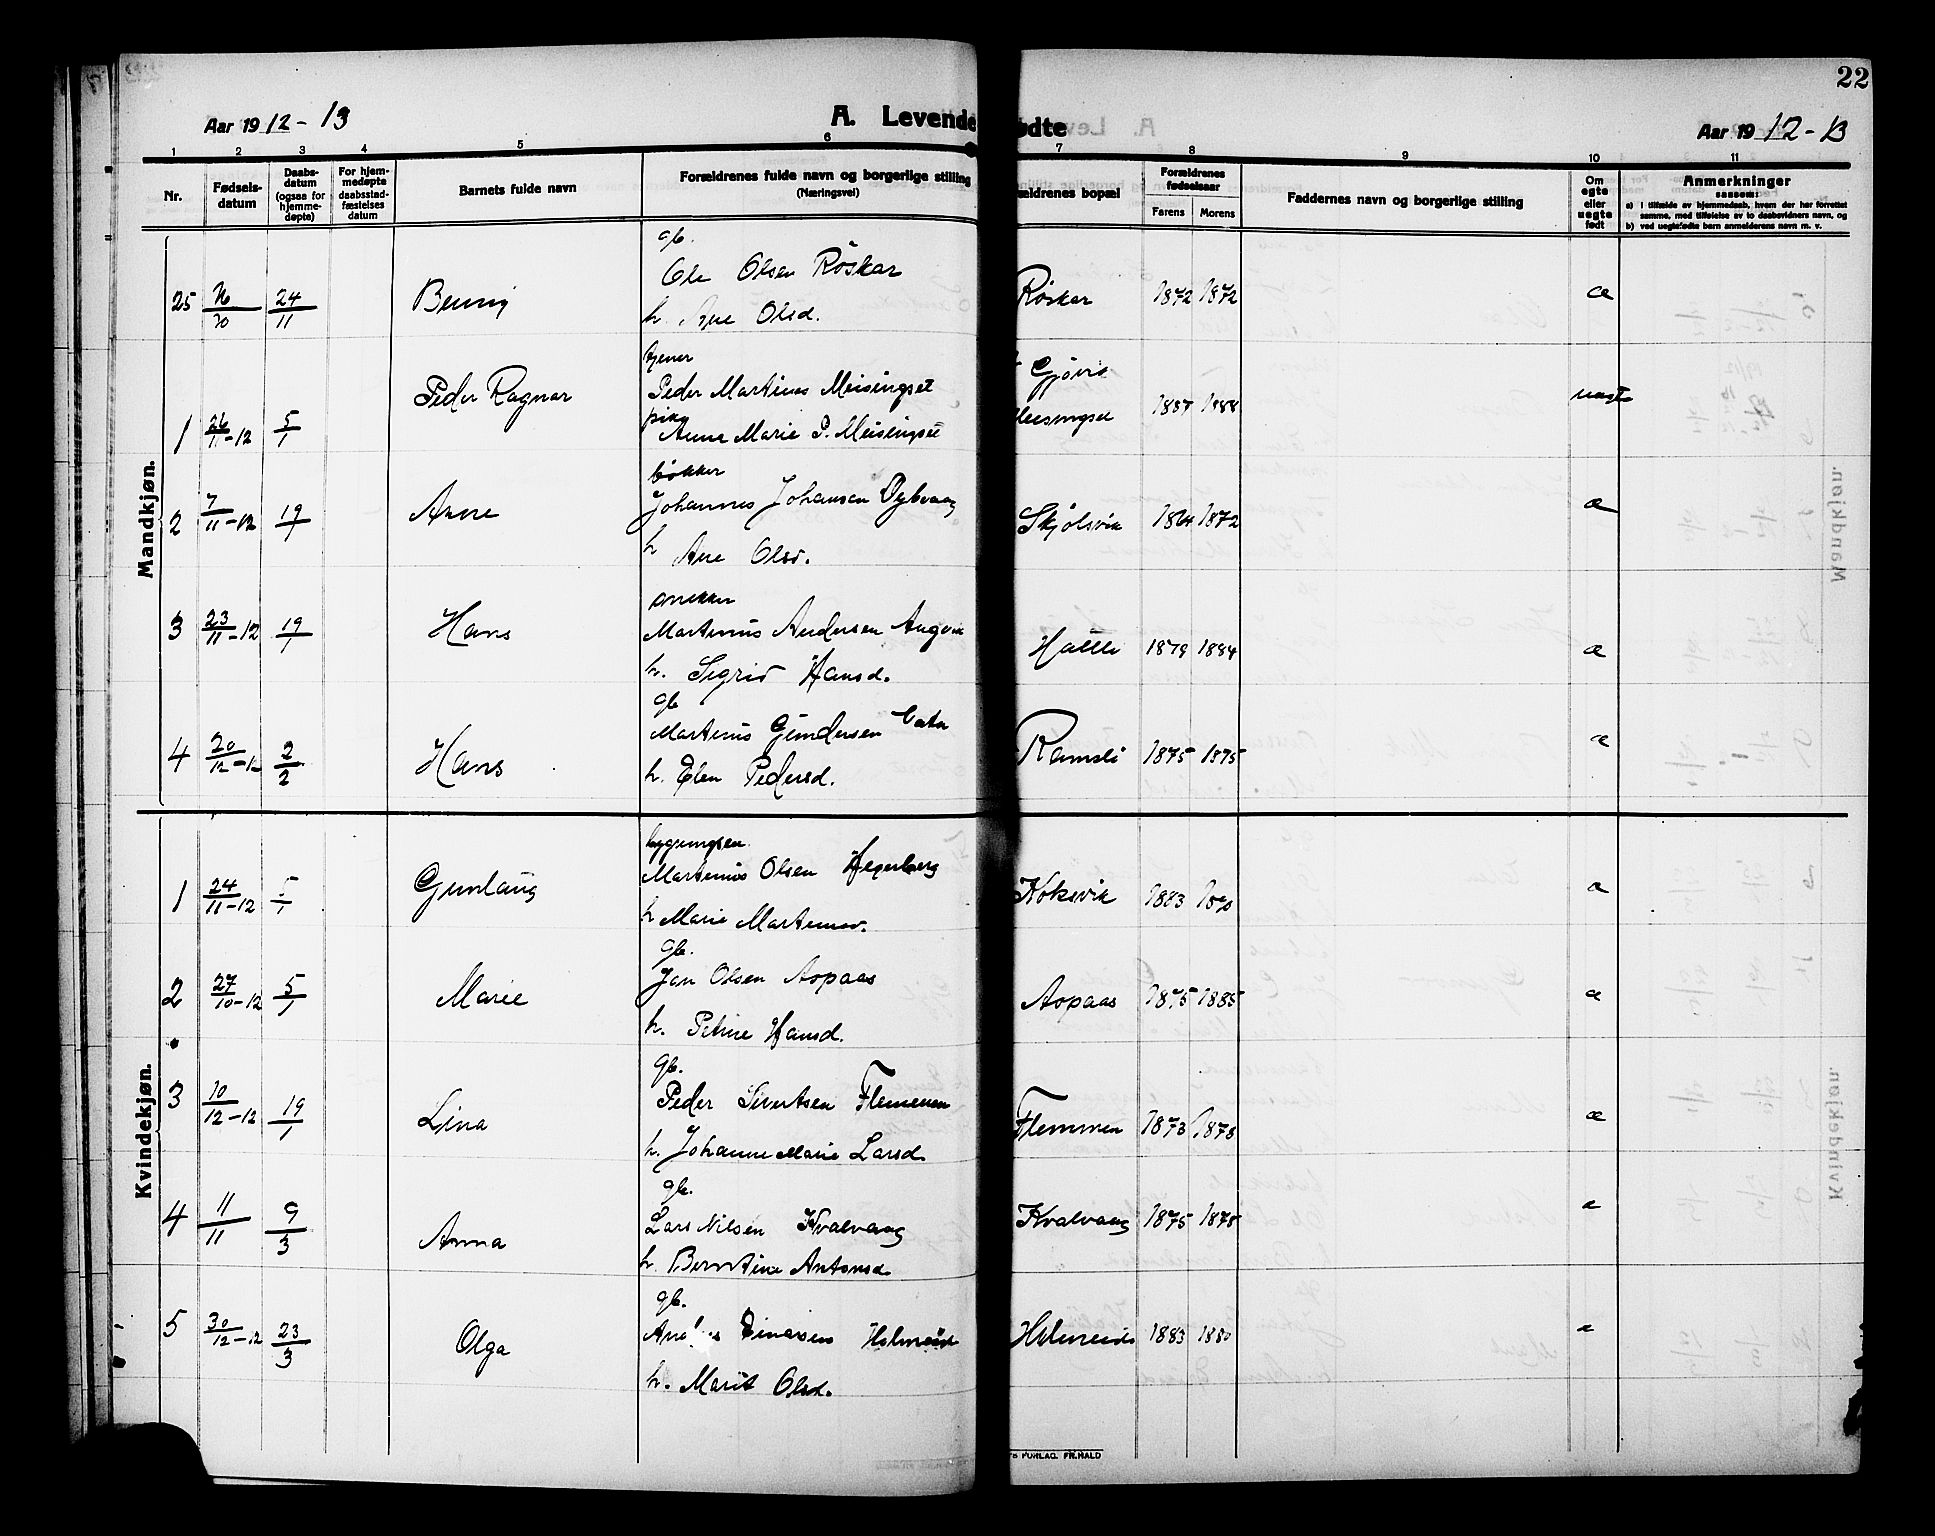 22
Aar 1912-13
A. Levende
ødte
Aar 1912-13
1 2 3 4 5 6 7 8 9 10 11
Nr.
Fødsels-
datum
Daabs-
datum
(ogsaa for
hjemme-
døpte)
For hjem-
medøpte
daabsstad-
fæstelses
datum
Barnets fulde navn
Forældrenes fulde navn og borgerlige stilling
(Næringsvei)
ældrenes bopæl
Forældrenes
fødselsaar
Farens Morens
Faddernes navn og borgerlige stilling
Om
egte
eller
uegte
født
Anmerkninger
saasom:
a) i tilfælde av hjemmedaab, hvem der har forrettet
samme, med tilføielse av to daabsvidners navn, og
b) ved uegtefødte barn anmelderens navn m. v.
Mandkjøn.
gb.
Ole Olsen Røskar
25 24/11 Røskar 1872 1872 æ
h. Ane Olsd.
tjener
Peder Ragnar Peder Martinus Meisingset Gjøvik
pike
1 26/11-12 5/1 Anne Marie P. Meisingset 1887 1888 uegte
bøkker
2 7/11-12 19/1 Arne Johannes Johansen Skjølsvik 1864 1872 æ
h Ane Olsd.
snekker
3 23/11-12 19/1 Hans Martinus Andersen Angvik 1879 1884 æ
h. Sigrid Hansd.
gb
4 20/12-12 2/2 Hans Martinus Gundersen Ramsli 1875 1875 æ
h. Elen Pedersd.
Kvindekjøn.
1 24/11-12 5/1 Gunlaug Martinus Olsen Hegerberg Koksvik 1883 æ
h Marie
gb.
2 27/10-12 5/1 Marie Jon Olsen Aspaas Aspaas 1875 1885 æ
h. Petrine Hansd.
gb.
3 10/12-12 19/1 Lina Peder Sivertsen Flemmen Flemmen 1873 1878 æ
h. Johanne Marie Larsd.
gb.
4 11/11 9/3 Anna Lars Nilsen Kvalvaag Kvalvaag 1875 1878 æ
h. Berntine Antonsd.
gb.
5 30/12-12 23/3 Olga Einarsen Holmeide 1883 1880 æ
h. Marit Olsd.
FORLAG. FR. HALD